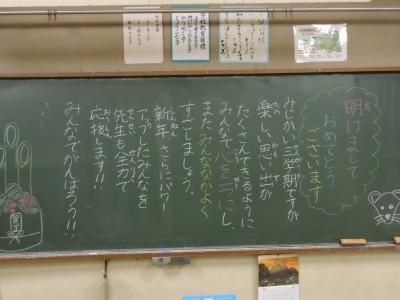 明けまして
おめでとう
ございます
みじかい三学期ですが
楽しい思い出が
たくさんできるように
みんなで心を一つにし、
またみんななかよく
すごしましょう。
新年、さらにパワー
アップしたみんなを
先生も全力で
応援します!!
みんなでがんばろう!!